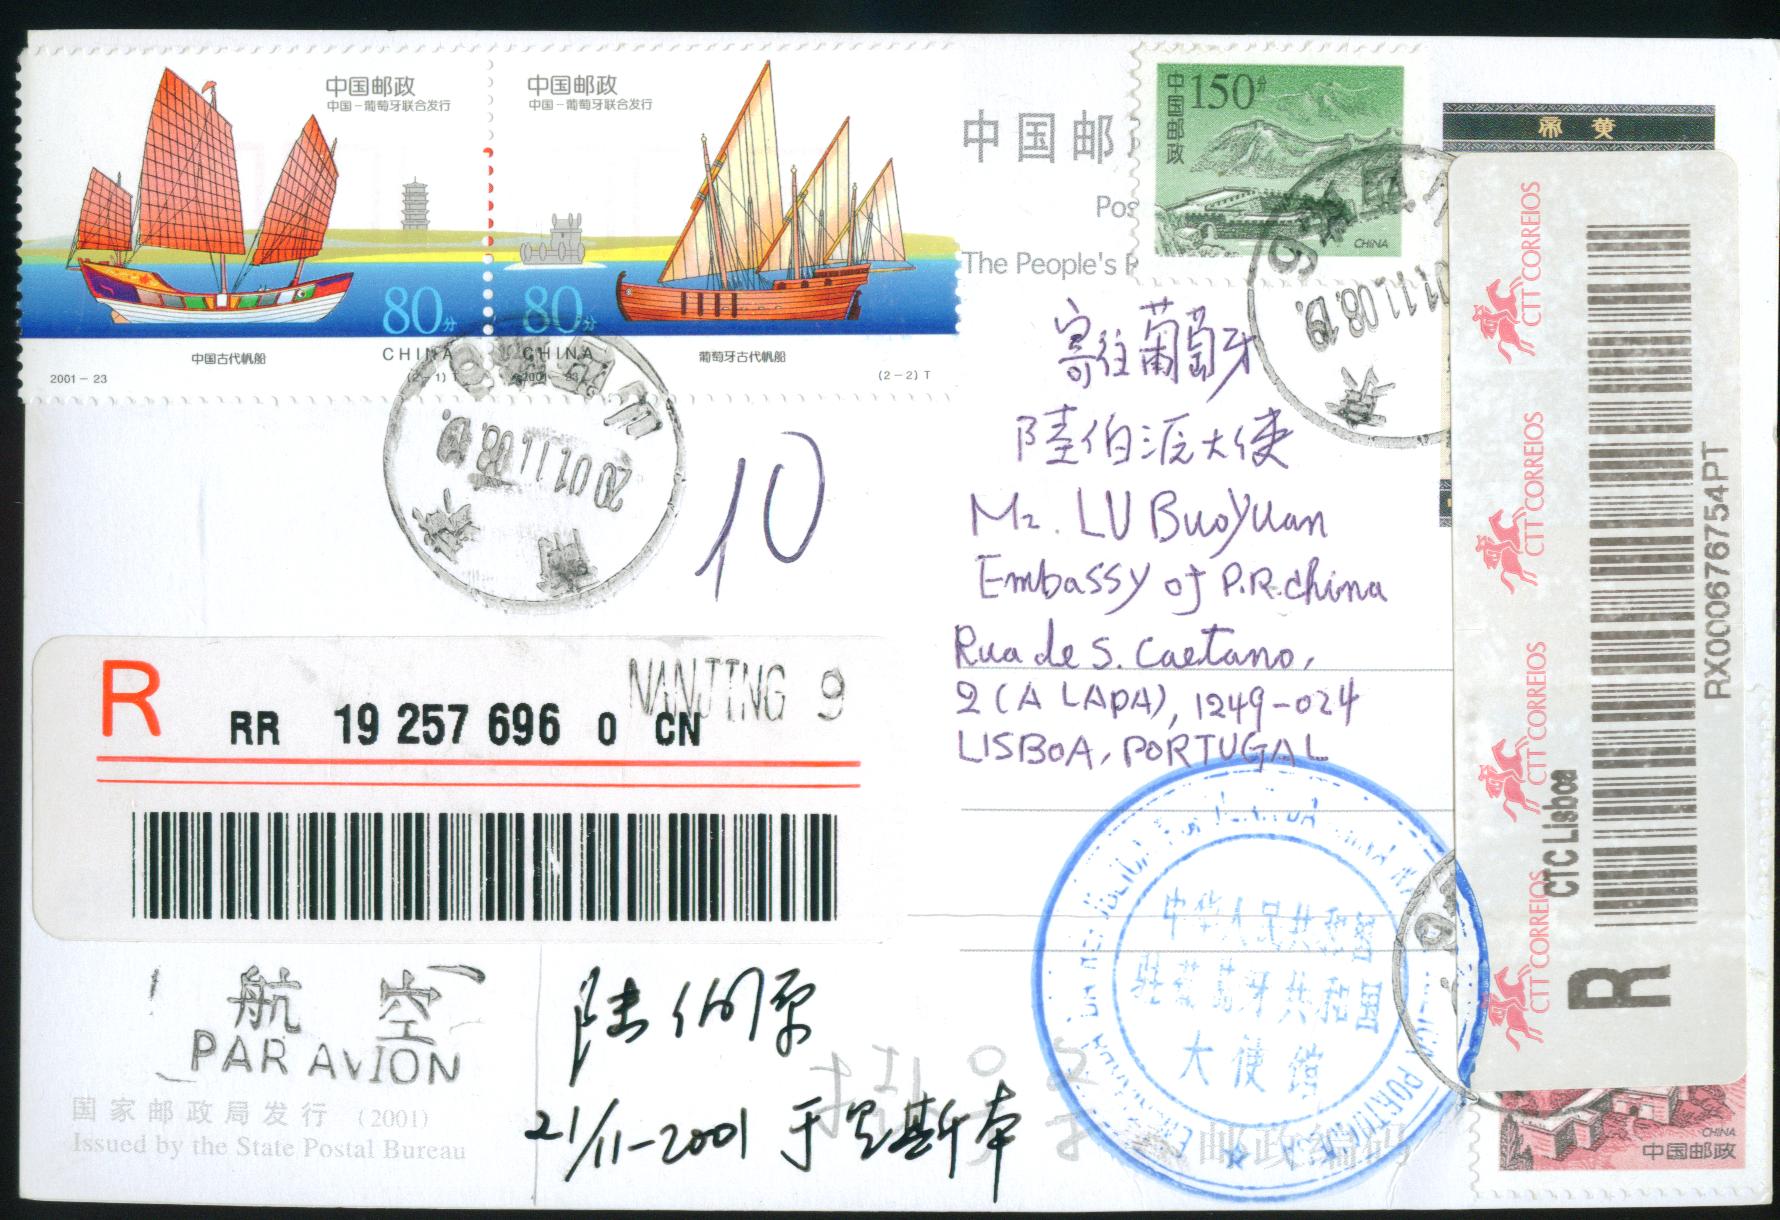 中国邮政
中国－葡萄牙联合发行
80分
中国古代帆船
CHINA
2001－23
(2－1) T
中国邮政
中国－葡萄牙联合发行
80分
CHINA
2001－23
葡萄牙古代帆船
(2－2) T
中国邮
Pos
The People's
中国邮政
150分
CHINA
黄帝
2001.11.08.19
10
寄往葡萄牙
陸伯源大使
Mr. LU BuoYuan
Embassy of P.R.china
Rua de S. Caetano,
2 (A LAPA), 1249-024
LISBOA, PORTUGAL
R
RR 19 257 696 0 CN
NANJING 9
航空
PAR AVION
国家邮政局发行 (2001)
Issued by the State Postal Bureau
陆伯源
21/11-2001 于里斯本
中华人民共和国
驻葡萄牙共和国
大使馆
邮政编码
CTT CORREIOS
CTT CORREIOS
CTT CORREIOS
CTT CORREIOS
CTC Lisboa
R
RX000676754PT
CHINA
中国邮政